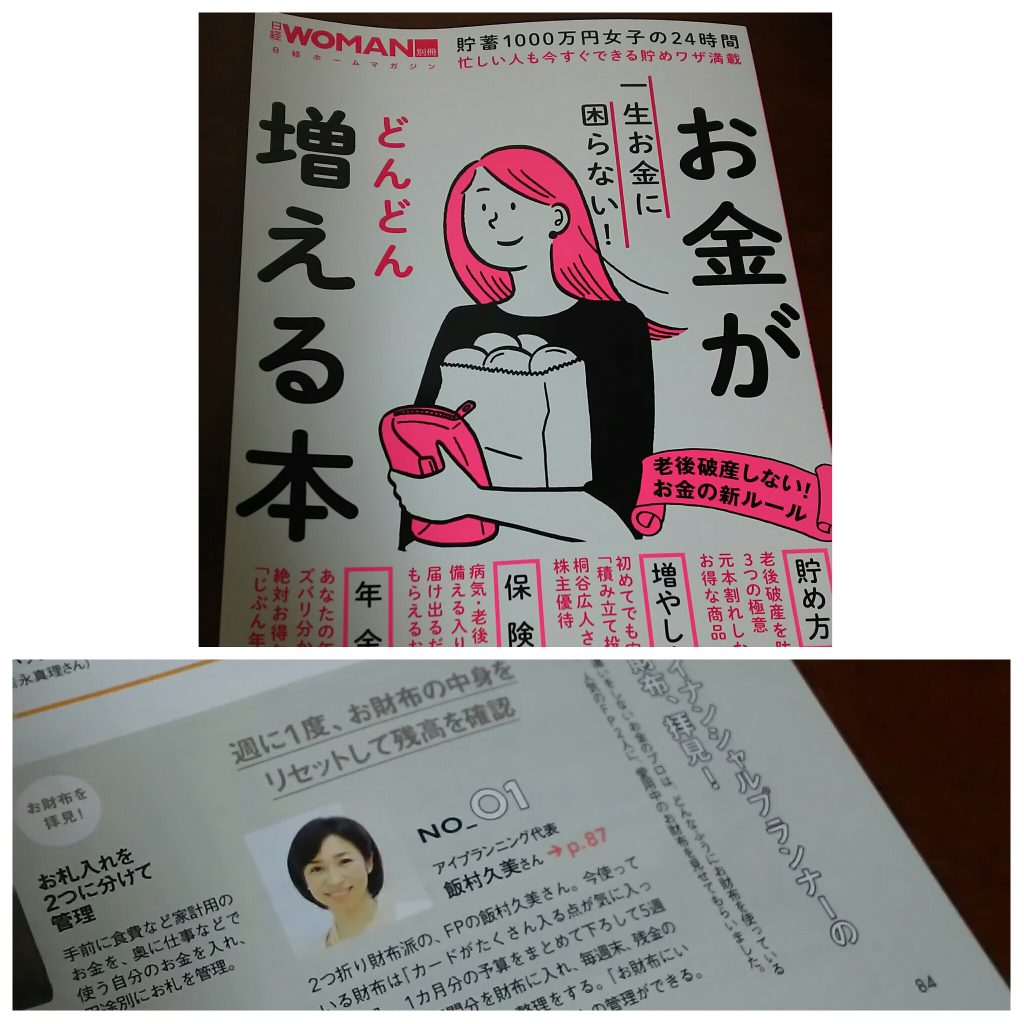 日経WOMAN別冊
日経ホームマガジン
貯蓄1000万円女子の24時間
忙しい人も今すぐできる貯めワザ満載
お金が
一生お金に
困らない!
どんどん
増える本
老後破産しない!
お金の新ルール
貯め方
老後破産を
3つの極意
元本割れしな
お得な商品
増やし
初めてでも
「積み立て投
桐谷広人さ
株主優待
保険
病気・老後
備える入り
届け出るだ
もらえるお
年金
あなたの年
ズバリ分か
絶対お得
「じぶん年
永真理さん)
イナンシャルプランナーの
財布、拝見!
違いをしないお金のプロは、どんなふうにお財布を使っている
人気のFP2人に、愛用中のお財布を見せてもらいました。
週に1度、お財布の中身を
リセットして残高を確認
NO_01
アイプランニング代表
飯村久美さん→p.87
2つ折り財布派の、FPの飯村久美さん。今使って
いる財布は「カードがたくさん入る点が気に入っ
1カ月分の予算をまとめて下ろして5週
間分を財布に入れ、毎週末、残金の
整理をする。「お財布にい
の管理ができる。
お財布を
拝見!
お札入れを
2つに分けて
管理
手前に食費など家計用の
お金を、奥に仕事などで
使う自分のお金を入れ、
用途別にお札を管理。
84